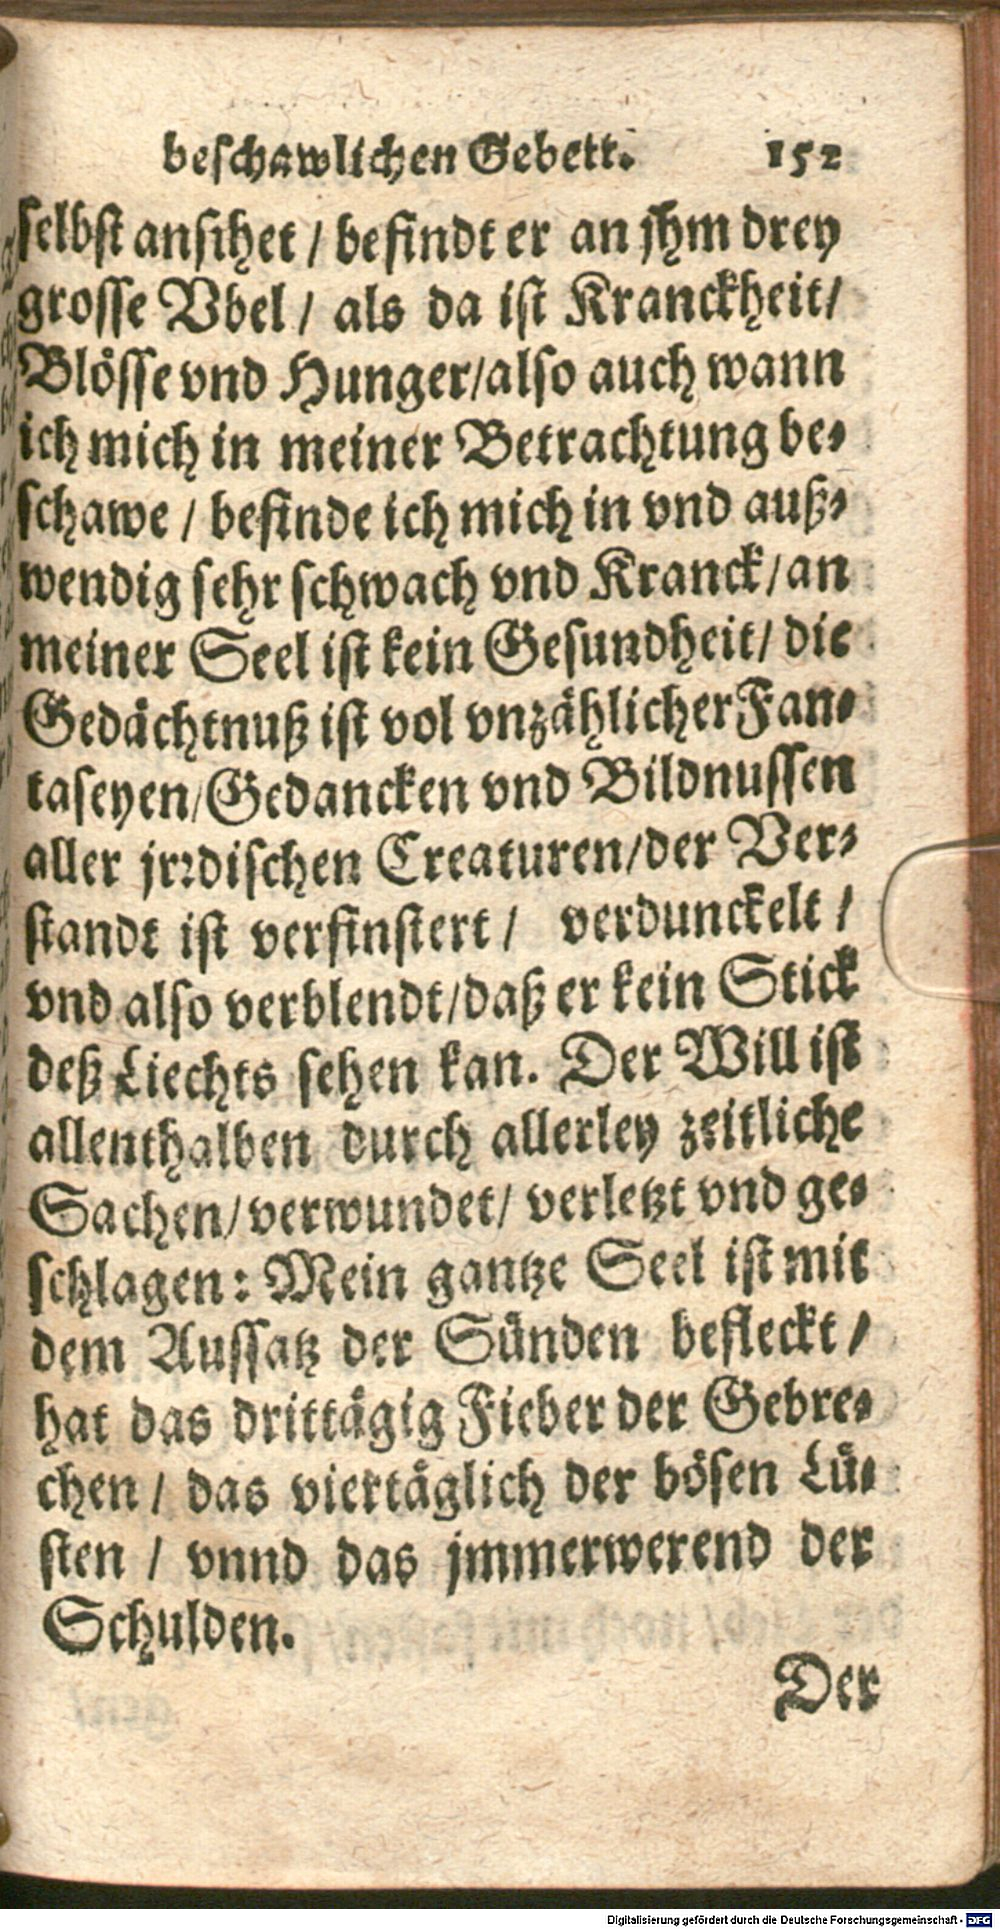 beschawlichen Gebett. 152
selbst ansihet / befindt er an jhm drey
grosse Vbel / als da ist Kranckheit /
Blösse vnd Hunger / also auch wann
ich mich in meiner Betrachtung be-
schawe / befinde ich mich in vnd auß-
wendig sehr schwach vnd Kranck / an
meiner Seel ist kein Gesundheit / die
Gedächtnuß ist vol vnzählicher Fan-
taseyen / Gedancken vnd Bildnussen
aller jrrdischen Creaturen / der Ver-
standt ist verfinstert / verdunckelt /
vnd also verblendt / daß er kein Stick
deß Liechts sehen kan. Der Will ist
allenthalben durch allerley zeitliche
Sachen / verwundet / verletzt vnd ge-
schlagen: Mein gantze Seel ist mit
dem Aussatz der Sünden befleckt /
hat das drittägig Fieber der Gebre-
chen / das viertäglich der bösen Lü-
sten / vnnd das jmmerwerend der
Schulden.
Der
Digitalisierung gefördert durch die Deutsche Forschungsgemeinschaft - DFG